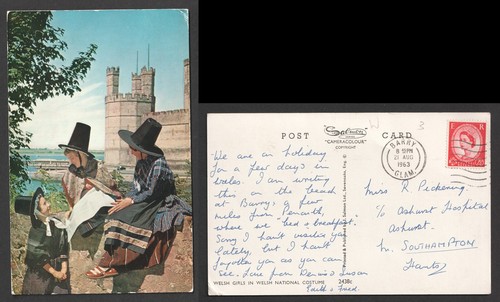 POST CARD
Salmon
"CAMERACOLOUR"
COPYRIGHT
BARRY
8 15PM
21 AUG
1963
GLAM.
We are on holiday
for a few days in
Wales. I am writing
this on the beach
at Barry, a few
miles from Penarth,
where we "bed & breakfast".
Sorry I hav't visited you
lately, but I hav't
forgotten you as you can
see. Love from Dennis, Susan
Edith & Fred
Miss R Pickering
c/o Ashurst Hospital
Ashurst
Nr. SOUTHAMPTON
Hants
WELSH GIRLS IN WELSH NATIONAL COSTUME
2438c